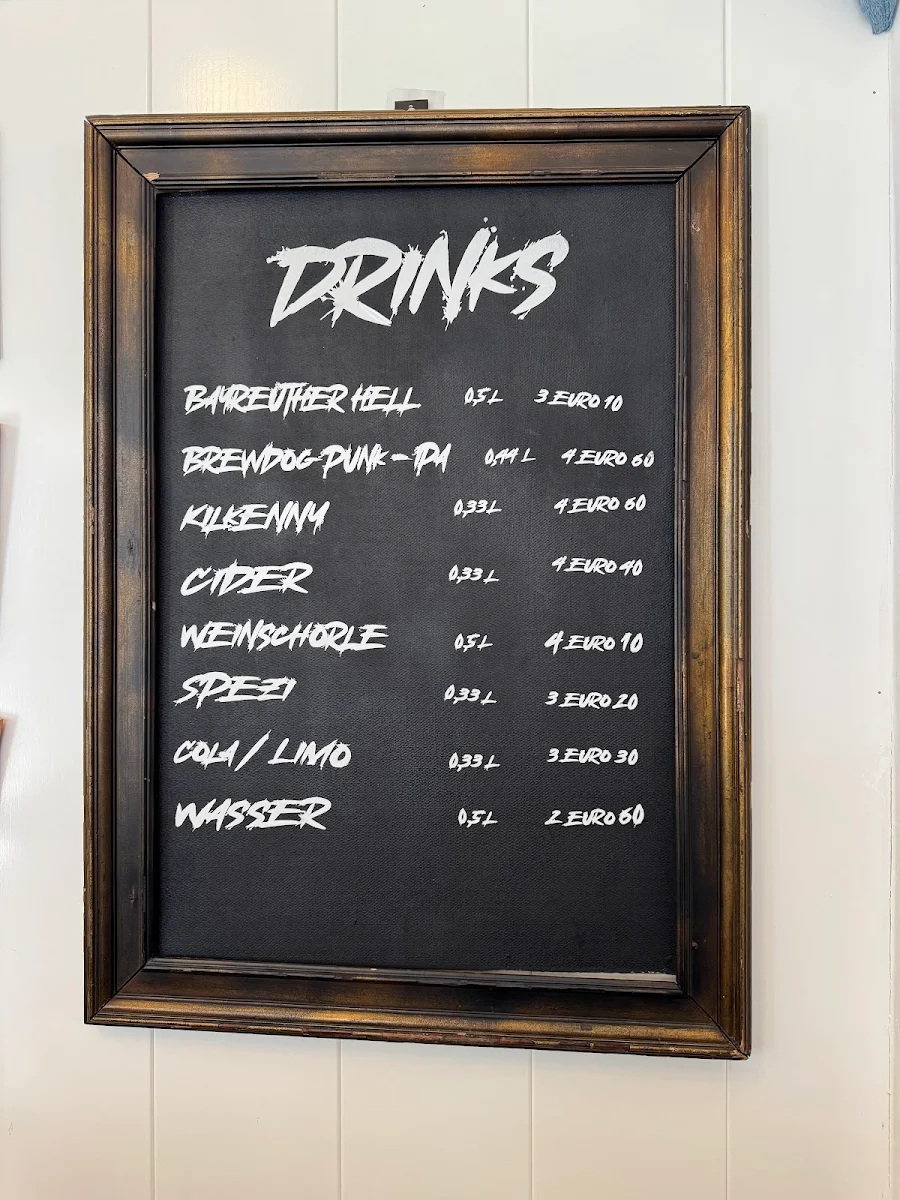 DRINKS
BAYREUTHER HELL 0,5 L 3 EURO 10
BREWDOG PUNK - IPA 0,44 L 4 EURO 60
KILKENNY 0,33 L 4 EURO 60
CIDER 0,33 L 4 EURO 40
WEINSCHORLE 0,5 L 4 EURO 10
SPEZI 0,33 L 3 EURO 20
COLA / LIMO 0,33 L 3 EURO 30
WASSER 0,5 L 2 EURO 60